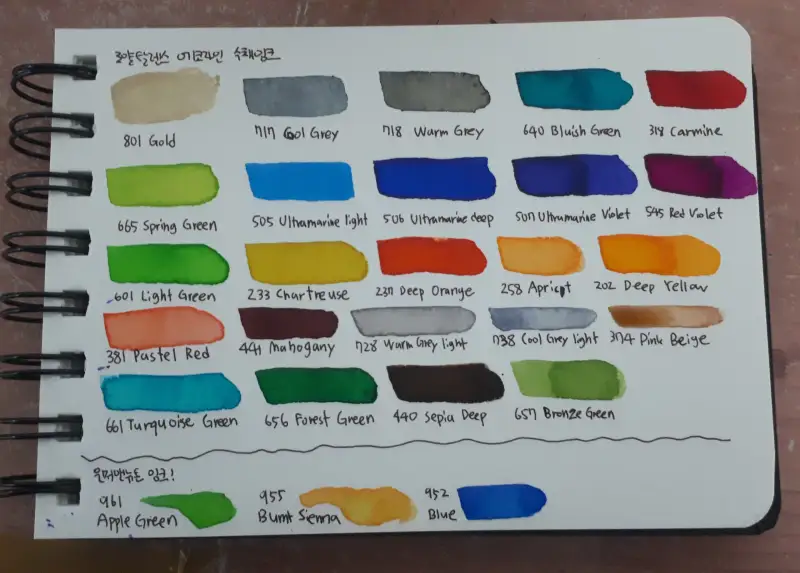 로얄탈렌스 에코라인 수채잉크
801 Gold
717 Cool Grey
718 Warm Grey
640 Bluish Green
318 Carmine
665 Spring Green
505 Ultramarine light
506 Ultramarine deep
507 Ultramarine Violet
545 Red Violet
601 Light Green
233 Chartreuse
237 Deep Orange
258 Apricot
202 Deep Yellow
381 Pastel Red
441 Mahogany
728 Warm Grey light
738 Cool Grey light
374 Pink Beige
661 Turquoise Green
656 Forest Green
440 Sepia Deep
657 Bronze Green
윈저앤뉴튼 잉크!
961
Apple Green
955
Burnt Sienna
952
Blue